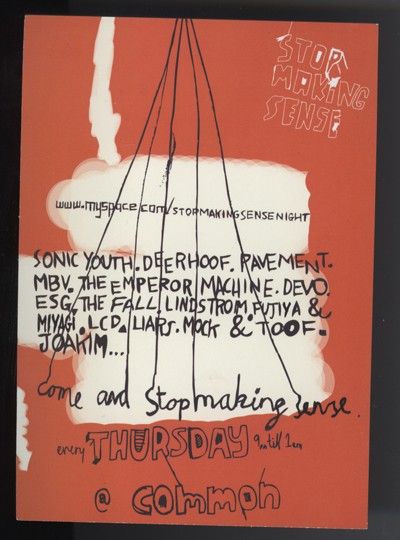 STOP
MAKING
SENSE
www.myspace.com/STOPMAKINGSENSENIGHT
SONIC YOUTH. DEERHOOF. PAVEMENT.
MBV. THE EMPEROR MACHINE. DEVO.
ESG. THE FALL. LINDSTROM. FUJIYA &
MIYAGI. LCD. LIARS. MOCK & TOOF.
JOAKIM...
come and Stop making sense.
every THURSDAY 9pm till 1am
@ common